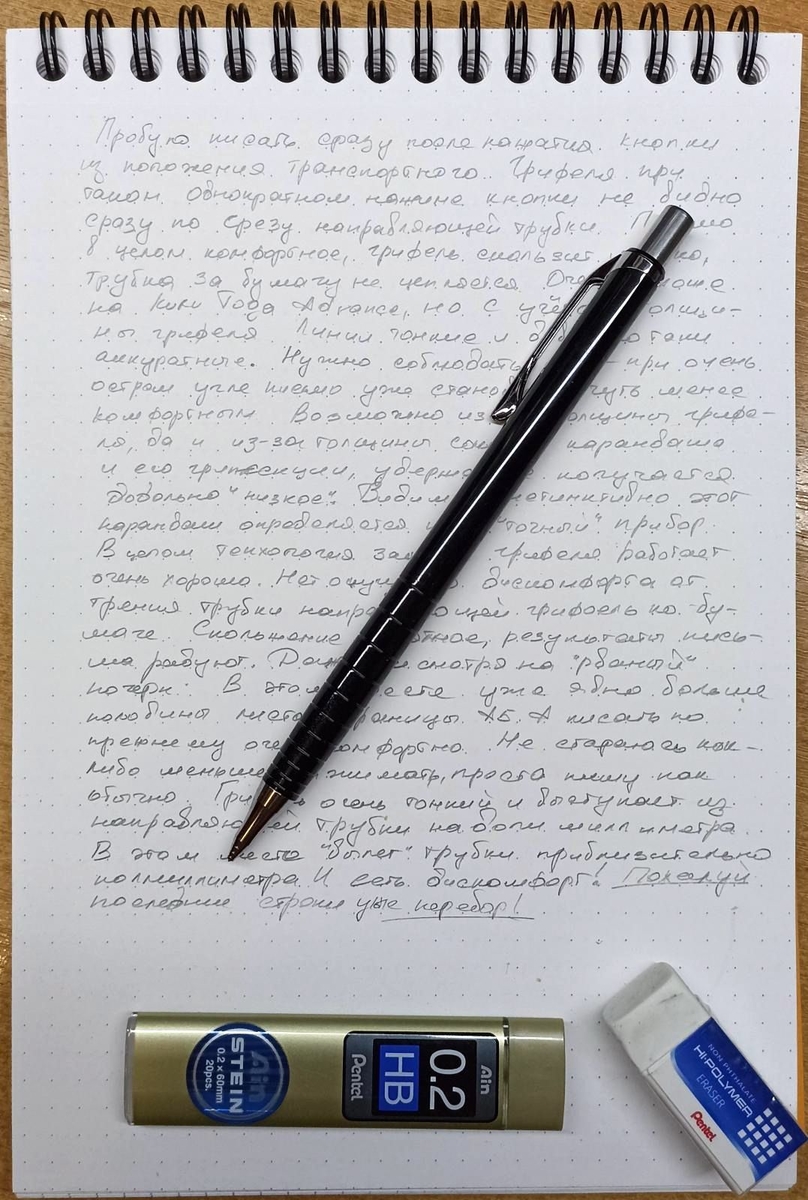 Пробую писать сразу после нажатия кнопки
из положения транспортного. Грифеля при
таком однократном нажиме кнопки не видно
сразу по срезу направляющей трубки.
в целом комфортное, грифель скользит
трубка за бумагу не цепляется.
на Kuru Toga Advance, но с
ны грифеля Линии тонкие и
аккуратные. Нужно соблюдать при очень
остром угле письмо уже чуть менее
комфортным Возможно из толщины грифе-
ля, да и из-за толщины карандаша
и его получается
довольно "низкое". этот
карандаш определяется "точный" прибор.
В целом технология грифеля работает
очень хорошо. Нет дискомфорта от
трения трубки грифель по бу-
маге. Скольжение результаты пись-
ма радуют. смотря на "рваный"
почерк. В этом уже явно больше
половины листа А5. А писать по
прежнему комфортно. Не стараюсь как-
либо меньше просто пишу как
обычно. очень тонкий и выступает из
трубки на доли миллиметра.
В этом месте "вылет" трубки приблизительно
полмиллиметра И есть дискомфорт! Пожалуй
последние строки уже перебор!
Ain
STEIN
0.2 x 60mm
20pcs.
Ain
0.2
HB
Pentel
NON PHTHALATE
HI-POLYMER
ERASER
Pentel